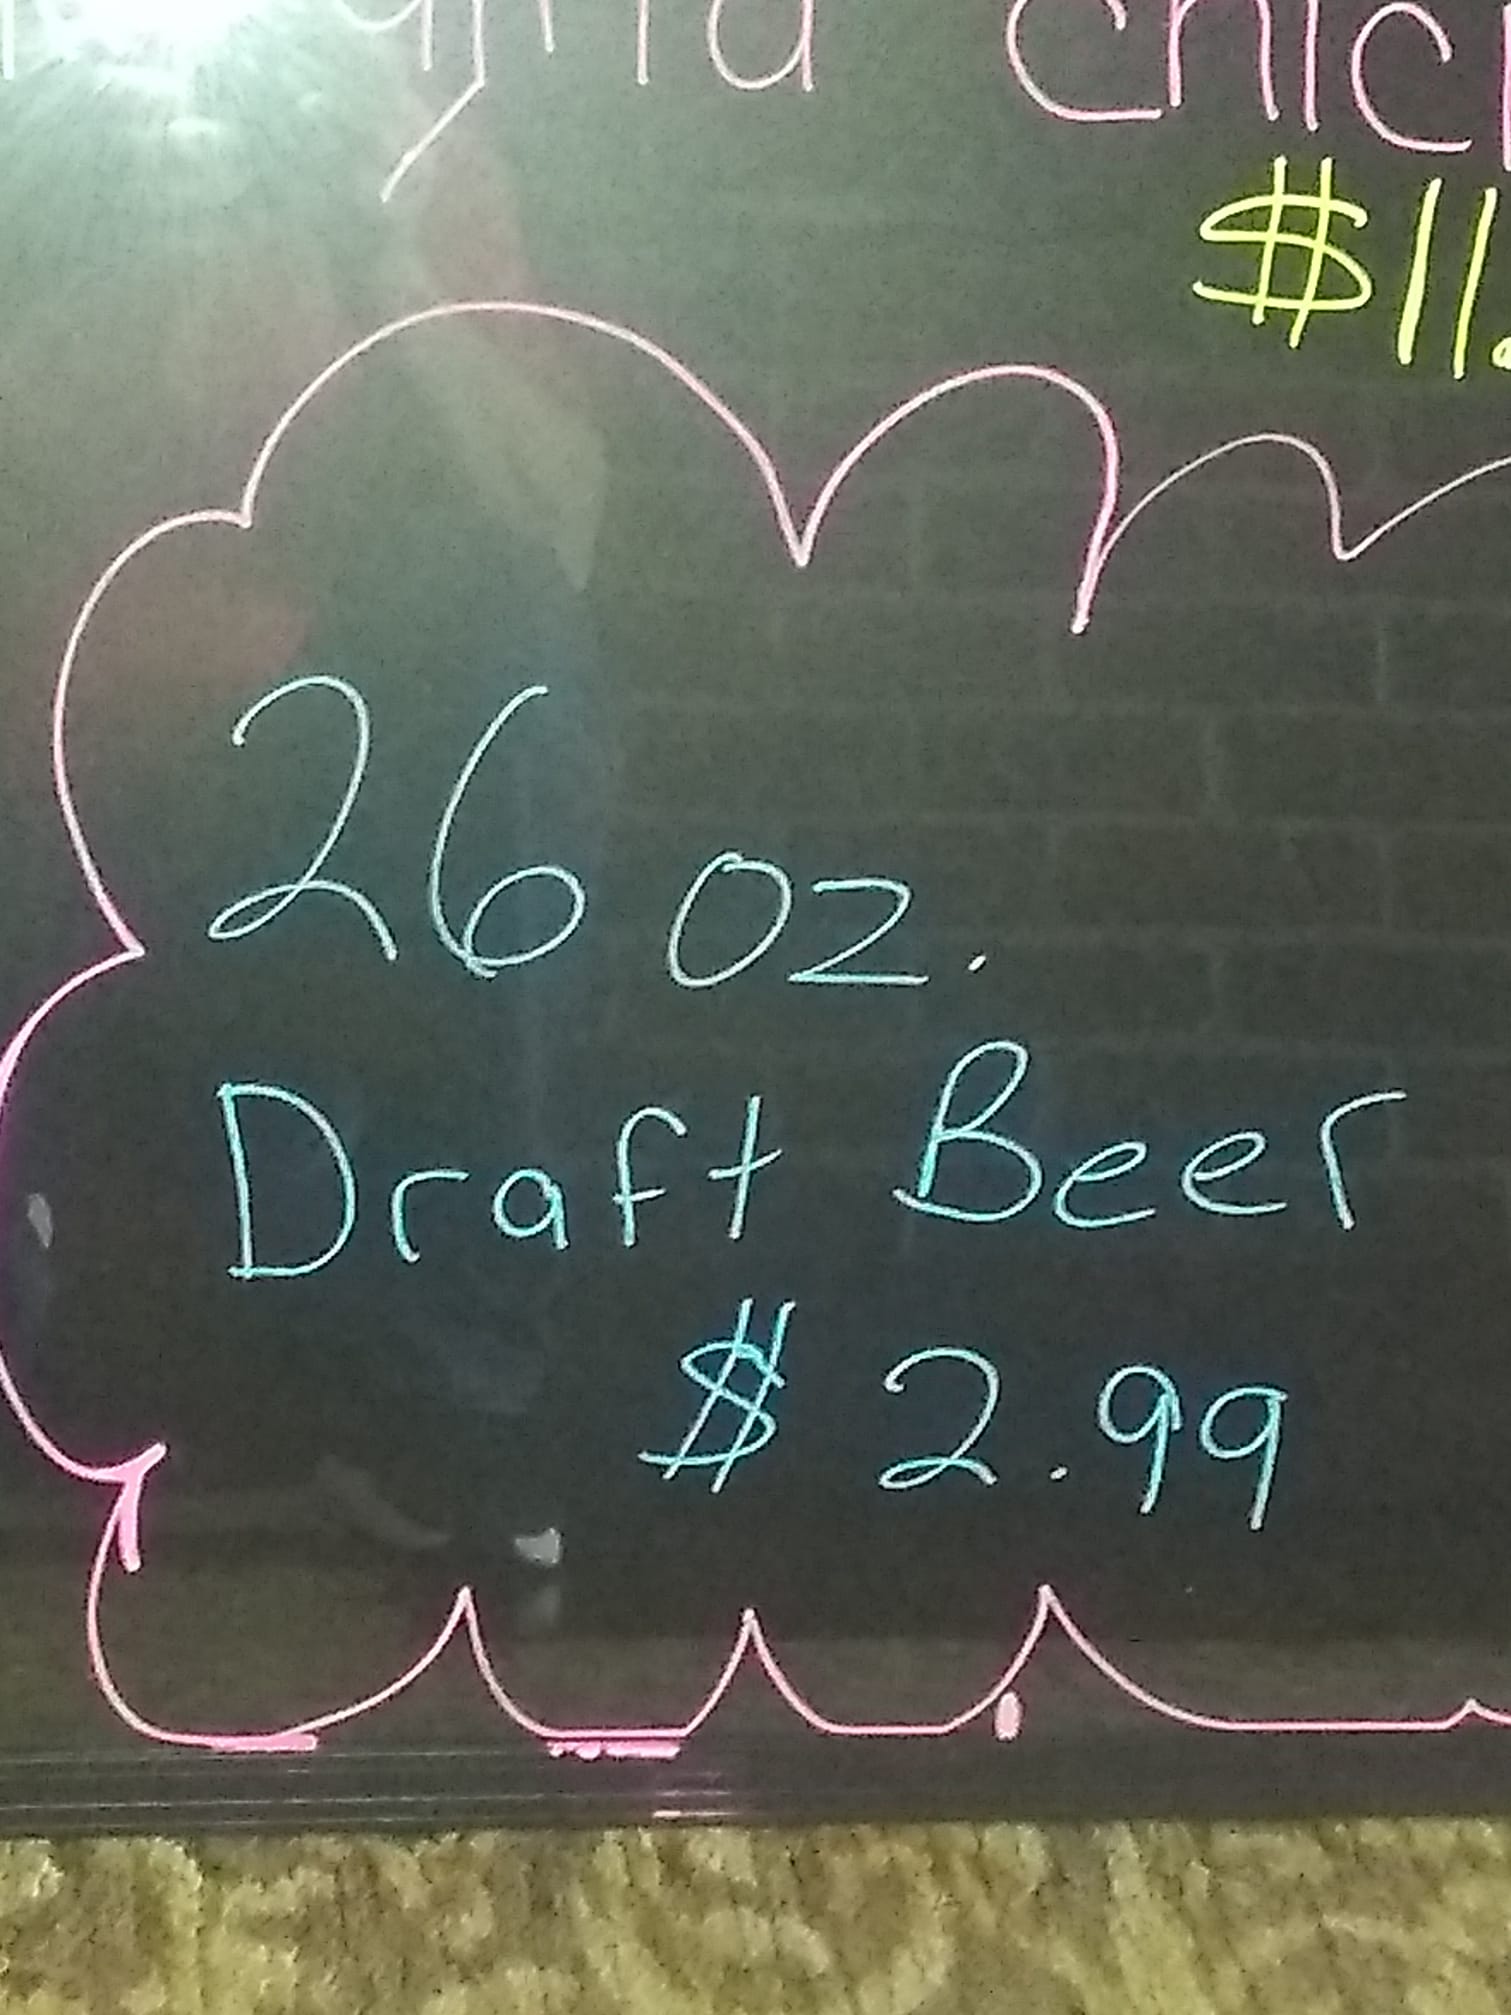 $11.
26 oz.
Draft Beer
$ 2.99